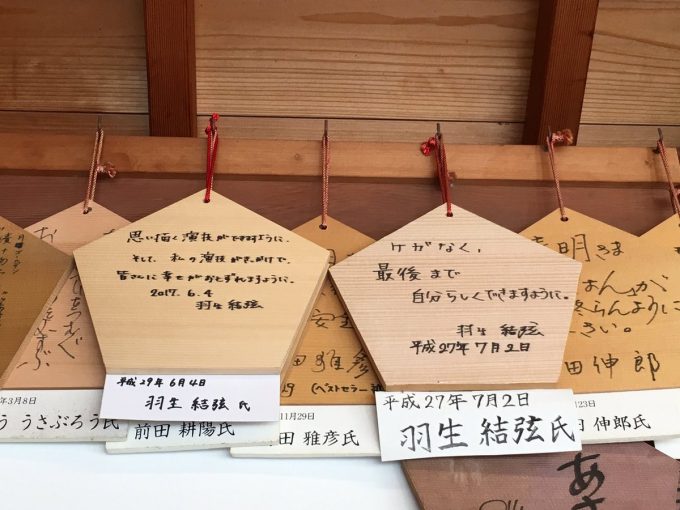 思い描く演技ができますように。
そして、私の演技がきっかけで、
皆さんに幸せがおとずれますように。
2017.6.4
羽生 結弦
平成29年6月4日
羽生 結弦 氏
ケガなく、
最後まで
自分らしくできますように。
羽生 結弦
平成27年7月2日
平成27年7月2日
羽生 結弦氏
年3月8日
う うさぶろう氏
前田 耕陽氏
11月29日
田 雅彦氏
(ベストセラー
月23日
伸郎氏
明さま
田 伸郎
あ